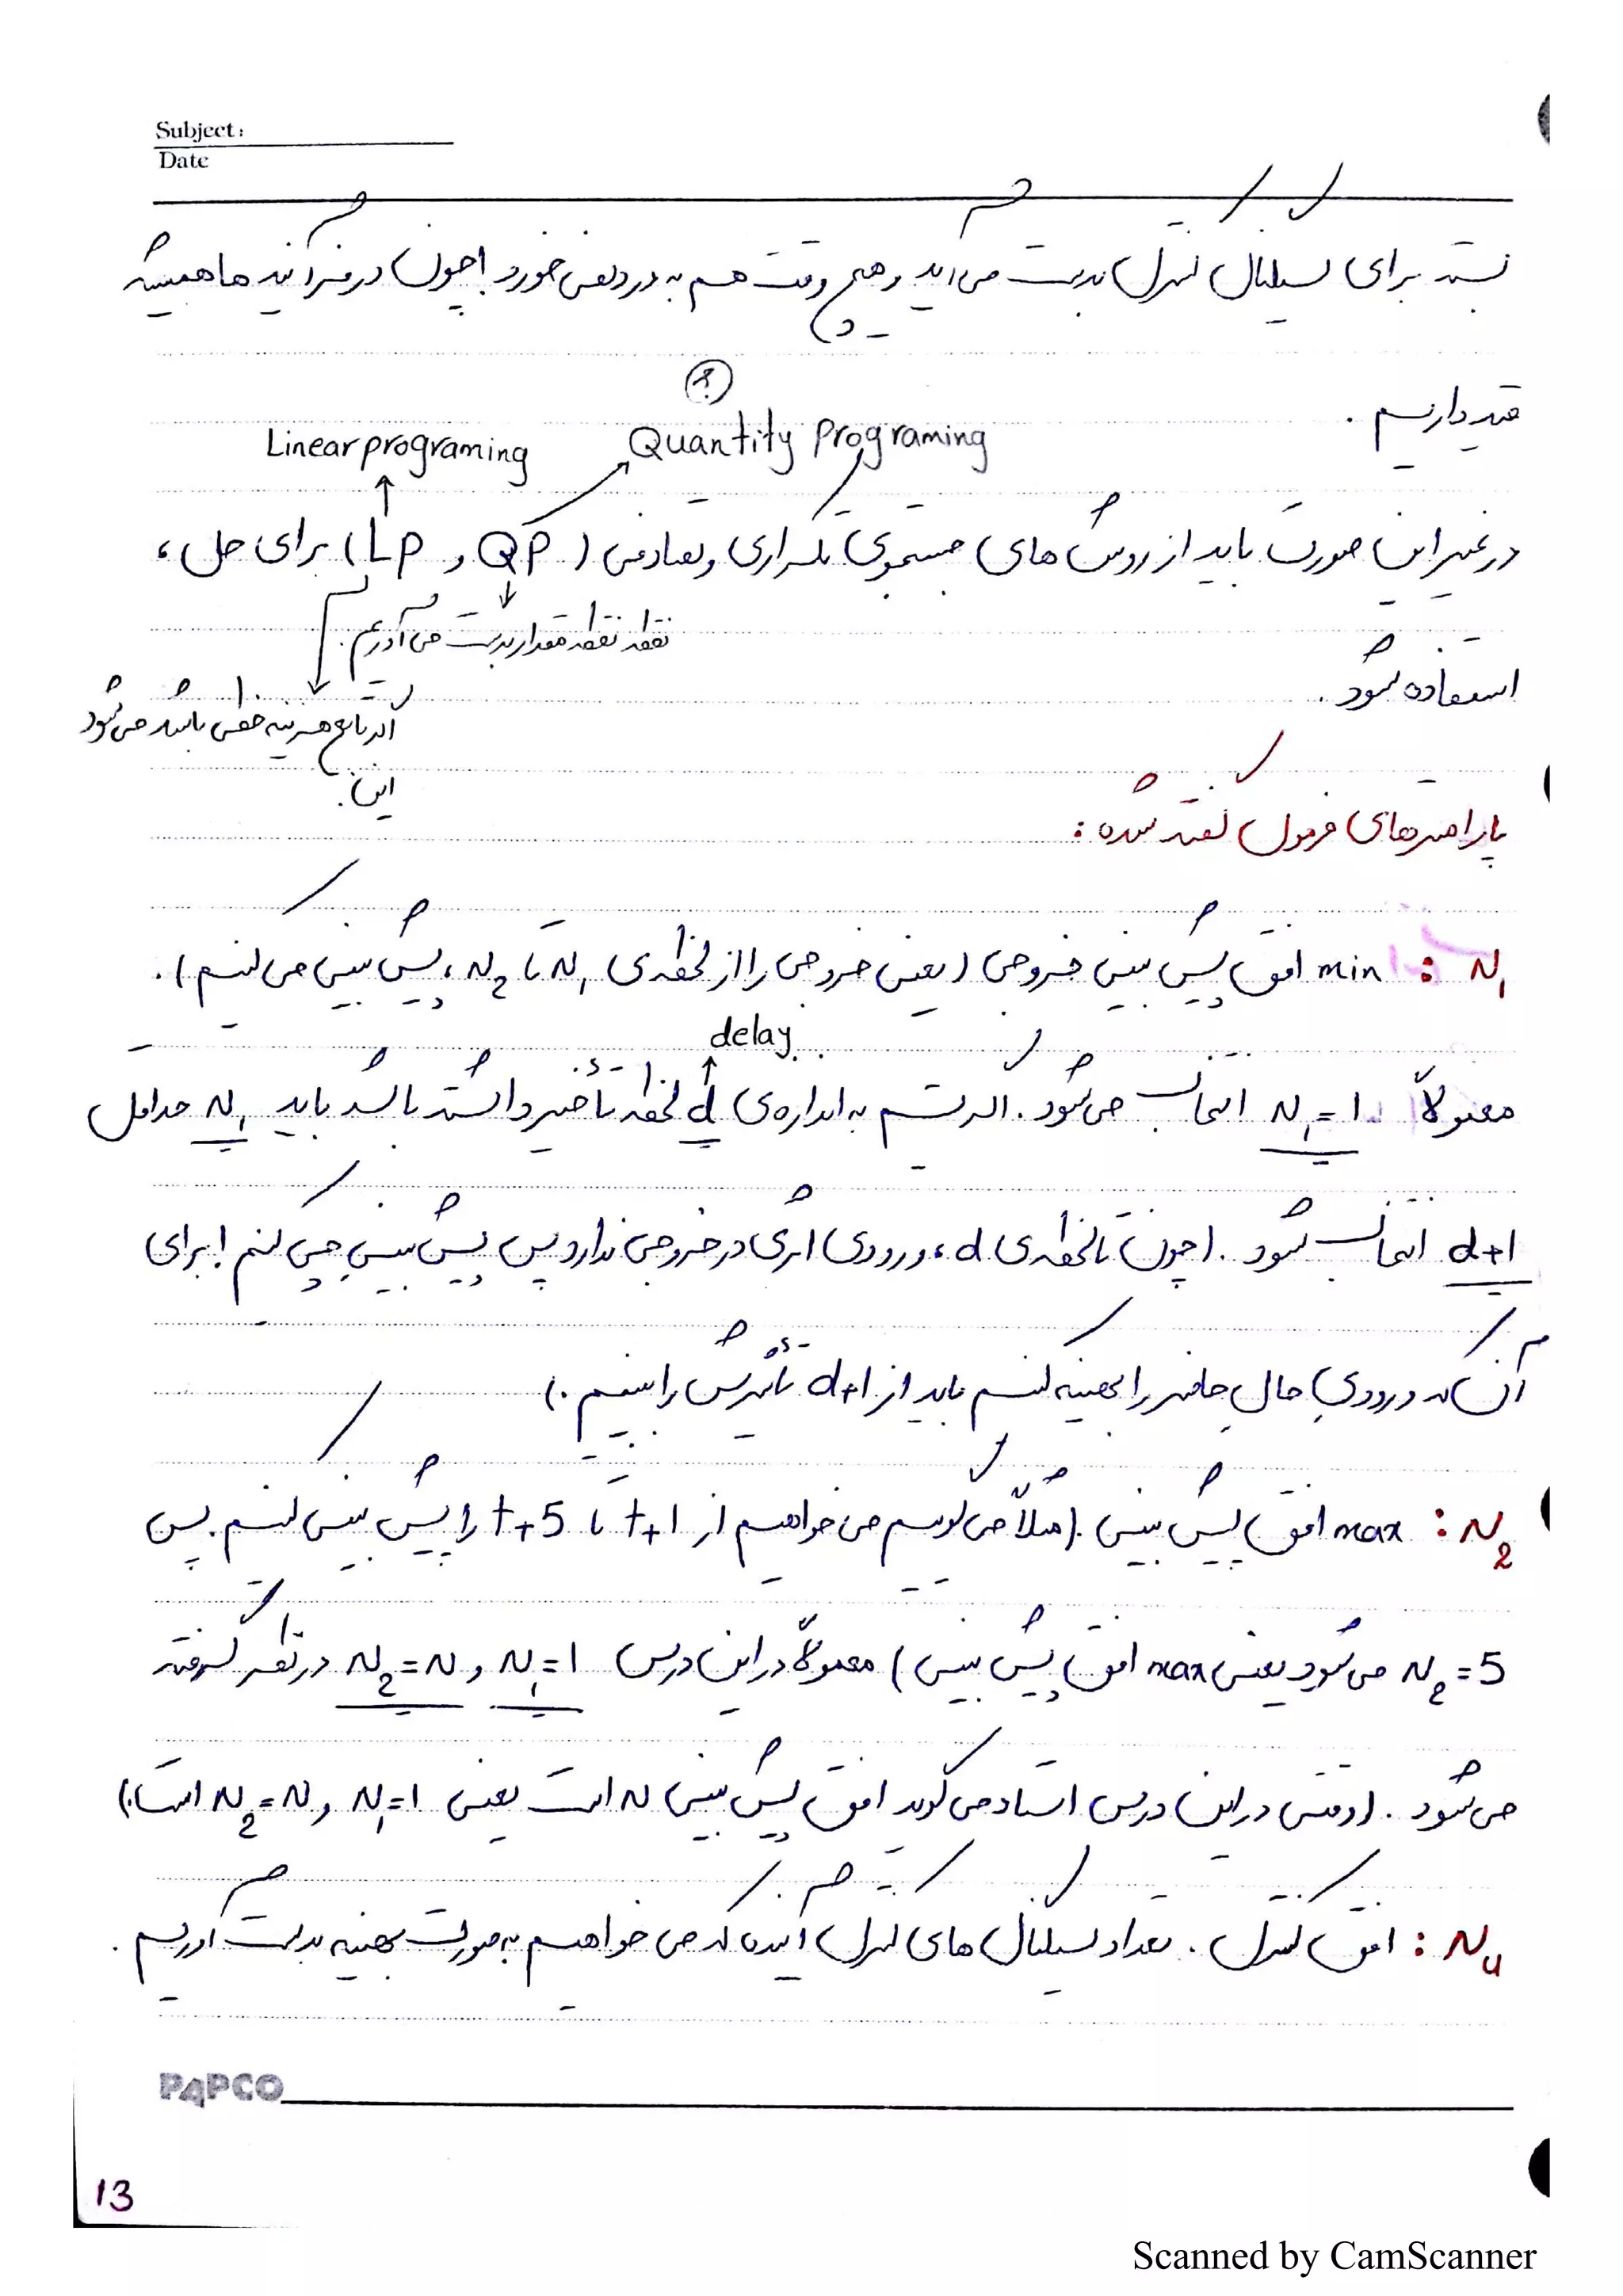 Subject:
Date
بسته برای سیگنال کنترل بدست می آید و هیچ وقت هم به درد نمی خورد! چون در فرآیندها همیشه
قید داریم.
?
Linear programing
Quantity Programing
در غیر این صورت باید از روش های جستجوی تکراری و تصادفی (QP و LP) برای حل،
نقطه نقطه مقدار بدست می آوریم.
استفاده شود.
اگر تابع هزینه خطی باشد می شود
این.
پارامترهای فرمول گفته شده:
N1: min افق پیش بینی خروجی (یعنی خروجی را از لحظه ی N1 تا N2، پیش بینی می کنیم).
delay
معمولاً N1=1 انتخاب می شود. اگر سیستم به اندازه ی d لحظه تأخیر داشته باشد باید N1 حداقل
d+1 انتخاب شود. (چون تا لحظه ی d، ورودی اثری در خروجی ندارد پس پیش بینیِ چی کنم! برای
آن که ورودیِ حالِ حاضر را بهینه کنیم باید از d+1 تأثیرش را ببینیم.)
N2: max افق پیش بینی. (مثلاً می گوییم می خواهیم از t+1 تا t+5 را پیش بینی کنیم. پس
N2=5 می شود یعنی max افق پیش بینی) معمولاً در این درس N1=1 و N2=N در نظر گرفته
می شود. (وقتی در این درس استاد می گوید افق پیش بینی N است یعنی N1=1 و N2=N است.)
Nu: افق کنترل. تعداد سیگنال های کنترل آینده که می خواهیم به صورت بهینه بدست آوریم.
PAPCO
13
Scanned by CamScanner